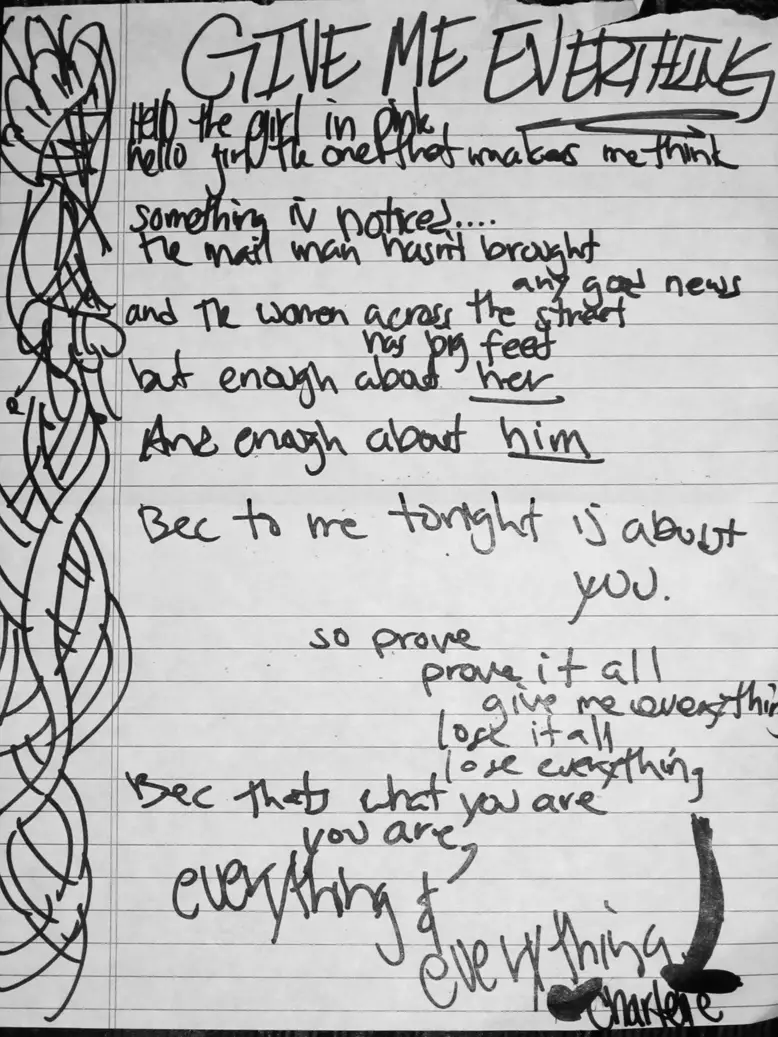 GIVE ME EVERYTHING
Hello the girl in pink,
hello girl the one that makes me think
something is noticed....
the mail man hasn't brought
any good news
and the women across the street
has big feet
but enough about her
And enough about him
Bec to me tonight is about
you.
so prove
prove it all
give me everything
lose it all
lose everything
Bec thats what you are
you are,
everything &
everything
Charlene